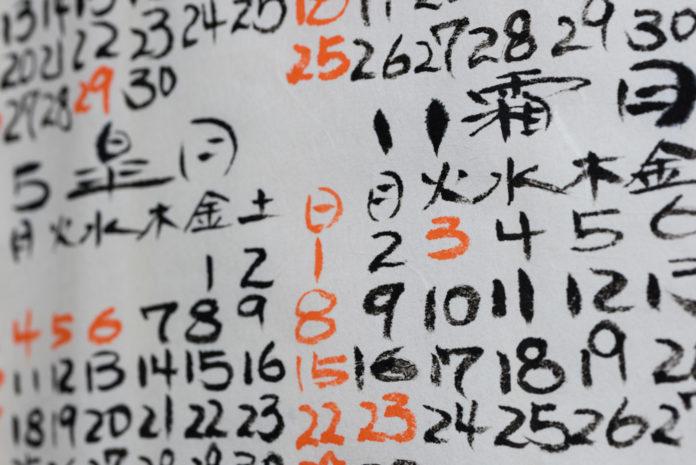 13 14 15
20 21 22 23 24 25
27 28 29 30
5 皐月
月 火 水 木 金 土
1 2
4 5 6 7 8 9
11 12 13 14 15 16
18 19 20 21 22 23
25 26 27 28 29
18
25 26 27 28 29 30
11 霜月
日 月 火 水 木 金
1 2 3 4 5 6
8 9 10 11 12 13
15 16 17 18 19
22 23 24 25 26 27